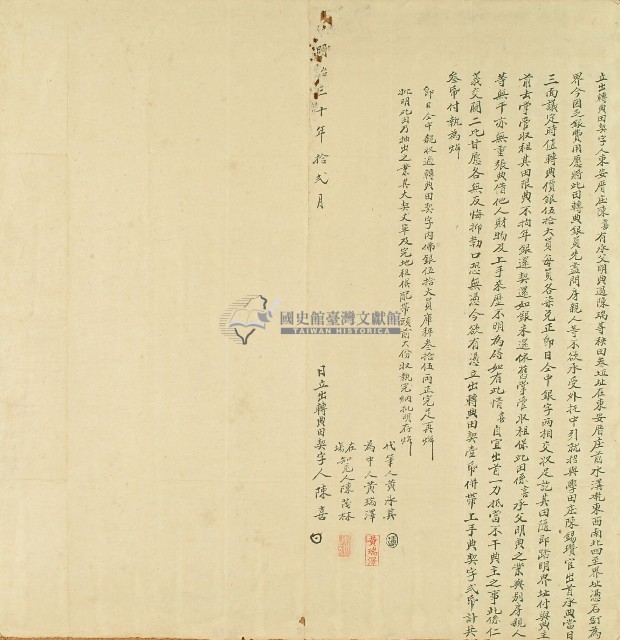 立出轉典田契字人東安厝庄陳喜有承父明典過陳瑞等秧田叁坵址在東安厝庄前水溝乾東西南北四至界址憑石釘為
界今因乏銀費用愿將此田轉典銀員先盡問房親人等不欲承受外托中引就招與學田庄陳錫瓚官出首承典當日
三面議定時值轉典價銀伍拾大員每員各柒兌正即日仝中銀字兩相交收足訖其田隨即踏明界址付與典主
前去掌管收租其田限典不拘年銀還契還如銀未還依舊掌管收租保此田係喜承父明典之業與別房親人
等無干亦無重張典借他人財物及上手來歷不明為碍如有此情喜自宜出首一力抵當不干典主之事此係仁
義交關二比甘愿各無反悔抑勒口恐無憑今欲有憑立出轉典田契壹帋併帶上手典契字弍帋計共
叁帋付執為炤
即日仝中親收過轉典田契字內佛銀伍拾大員庫秤叁拾伍兩正完足再炤
批明此田乃抽出之業其大契丈單及完地租俱配帶頭前大份收執完納批明存炤
代筆人黃承其
為中人黃瑞澤
黃瑞澤
在場知見人陳茂林
日立出轉典田契字人陳喜
明治三十年拾弍月
國史館臺灣文獻館
TAIWAN HISTORICA